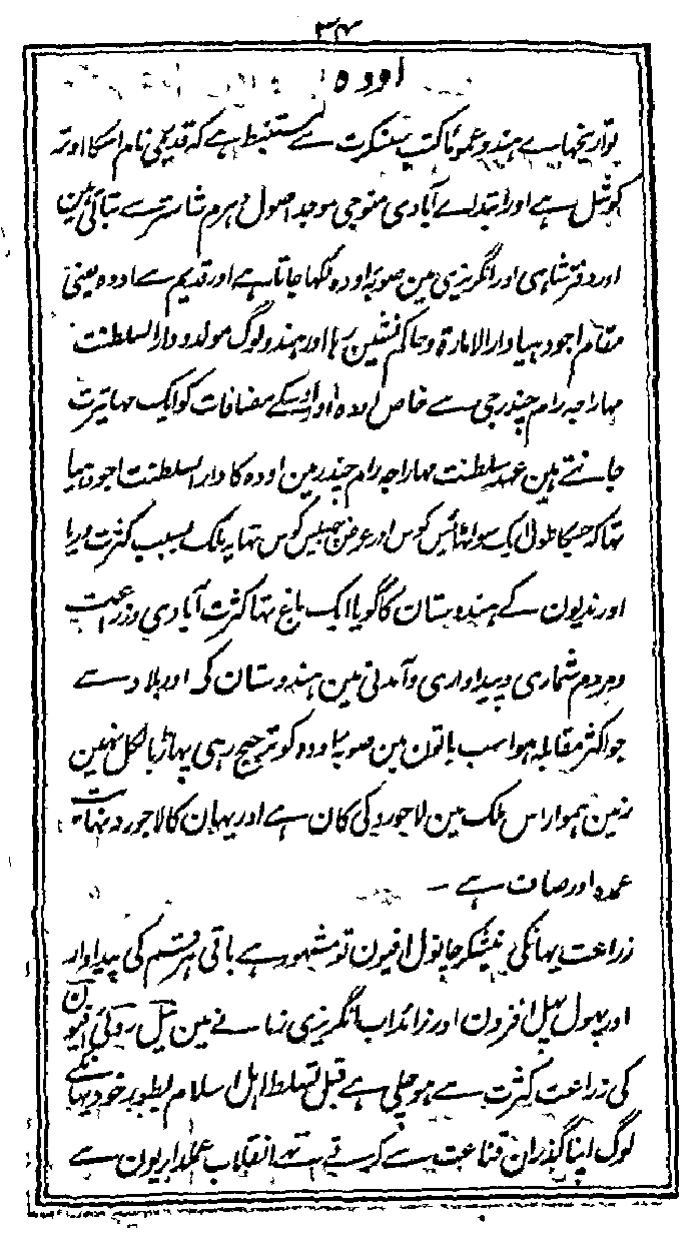 ۳۴
اودہ
تواریخہاے ہندو عموماً کتب سنسکرت سے مستنبط ہے کہ قدیمی نام اسکا اوتر
کوشل ہے اور ابتداے آبادی منوجی موجد اصول دہرم شاستر سے بتاتی ہین
اور دفتر شاہی اور انگریزی مین صوبہ اودہ لکہا جاتا ہے اور قدیم سے اودہ یعنی
مقام اجودہیا دار الامارۃ و حاکم نشین رہا اور ہندو لوگ مولد و دار السلطنت
مہاراجہ رام چندر جی سے خاص اودہ اور اوسکے مضافات کو ایک مہا تیرت
جانتے ہین عہد سلطنت مہاراجہ رام چندر مین اودہ کا دار السلطنت اجودہیا
تہا کہ جسکا طول ایک سو اٹہائیس کوس اور عرض چہتیس کوس تہا یہ ملک بسبب کثرت دریا
اور ندیون کے ہندوستان کا گویا ایک باغ تہا کثرت آبادی و زراعت
و مردم شماری و پیداواری و آمدنی مین ہندوستان کہ اور بلاد سے
جو اکثر مقابلہ ہوا سب باتون مین صوبہ اودہ کو ترجیح رہی پہاڑ بالکل نہین
زمین ہموار اس ملک مین لاجورد کی کان ہے اور یہان کا لاجورد نہایت
عمدہ اور صاف ہے ۔
زراعت یہانکی نیشکر چانول افیون تو مشہور ہے باقی ہر قسم کی پیداوار
اور پہول پہل افزون اور زائد اب انگریزی زمانے مین نیل روئی افیون
کی زراعت کثرت سے ہو چلی ہے قبل تسلط اہل اسلام بطور خود یہانکے
لوگ اپنا گذران قناعت سے کرتے تہے انقلاب عملداریون سے